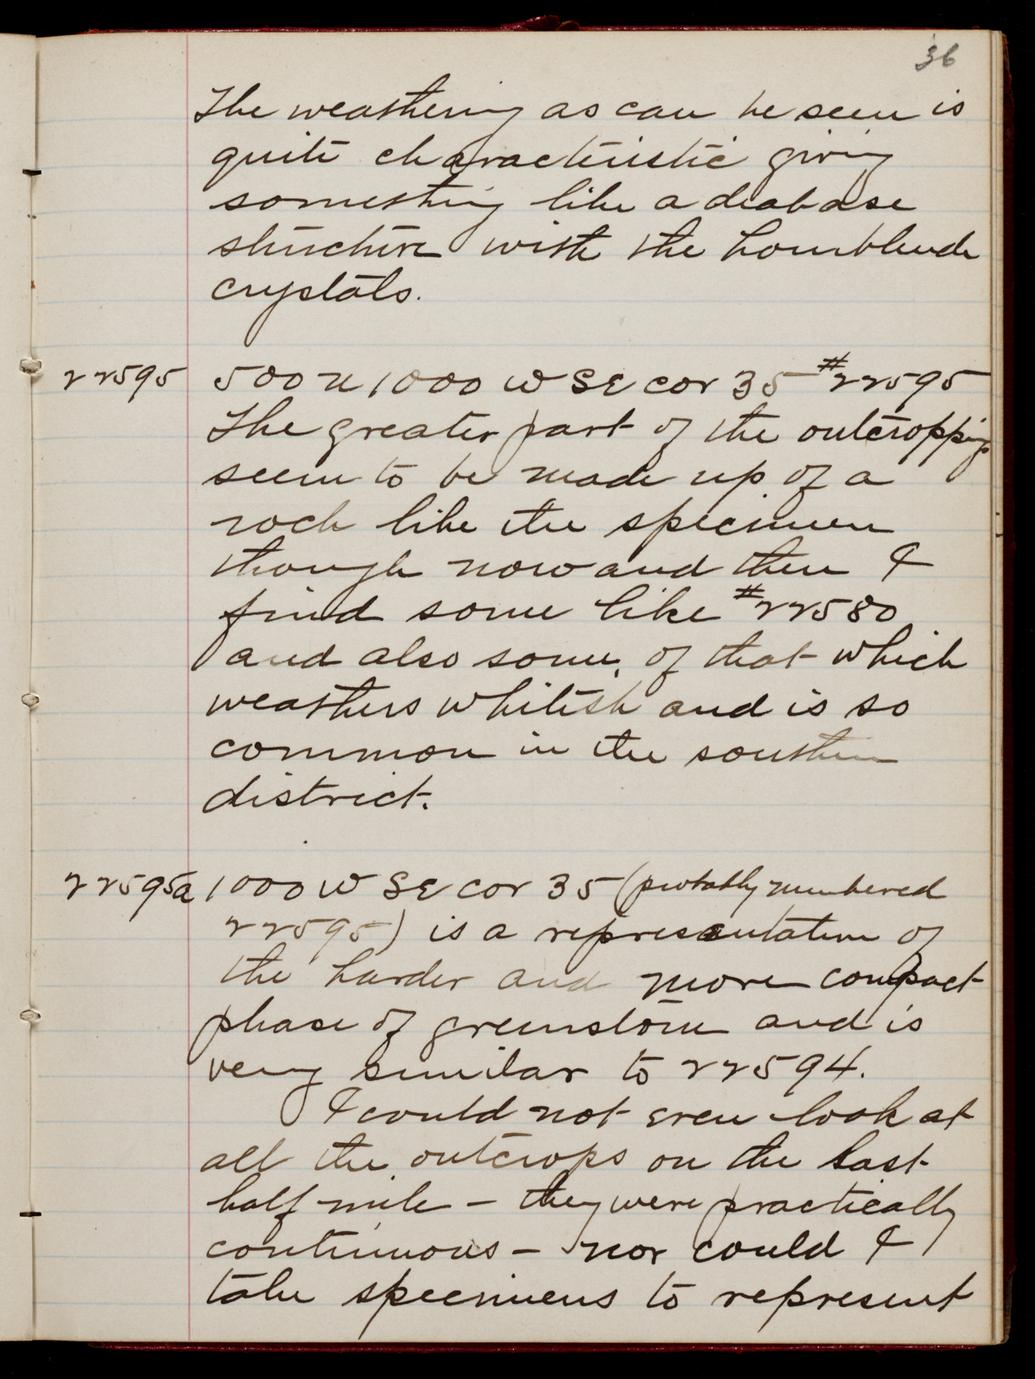 36
The weathering as can be seen is
quite characteristic giving
something like a diabase
structure with the hornblende
crystals.
22595 500 N 1000 W SE cor 35 #22595
The greater part of the outcroppings
seem to be made up of a
rock like the specimen
though now and then I
find some like #22580
and also some of that which
weathers whitish and is so
common in the southern
district.
22595a 1000 W SE cor 35 (probably numbered
22595) is a representative of
the harder and more compact
phase of greenstone and is
very similar to 22594.
I could not even look at
all the outcrops on the last
half mile - they were practically
continuous - nor could I
take specimens to represent